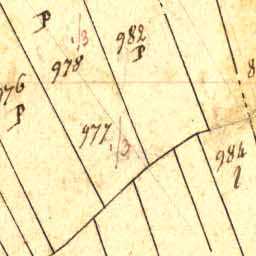 P
/3
982
P
978
976
P
977
/3
8
984
l